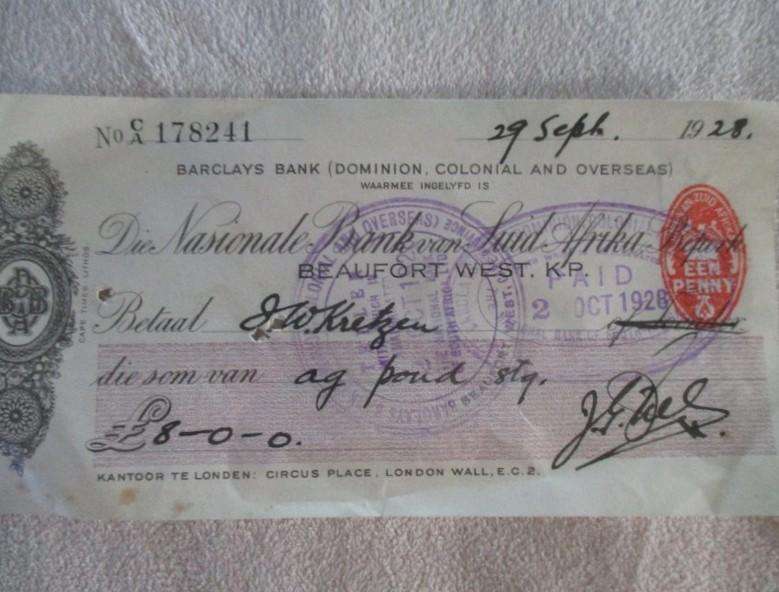 No C/A 178241 29 Sept. 1928.
BARCLAYS BANK (DOMINION, COLONIAL AND OVERSEAS)
WAARMEE INGELYFD IS
Die Nasionale Bank van Suid Afrika Beperk
BEAUFORT WEST. K.P.
EEN
PENNY
PAID
2 OCT 1928
Betaal J.W. Kretzen
die som van ag pond stg.
£8-0-0.
KANTOOR TE LONDEN: CIRCUS PLACE, LONDON WALL, E.C.2.
CAPE TIMES